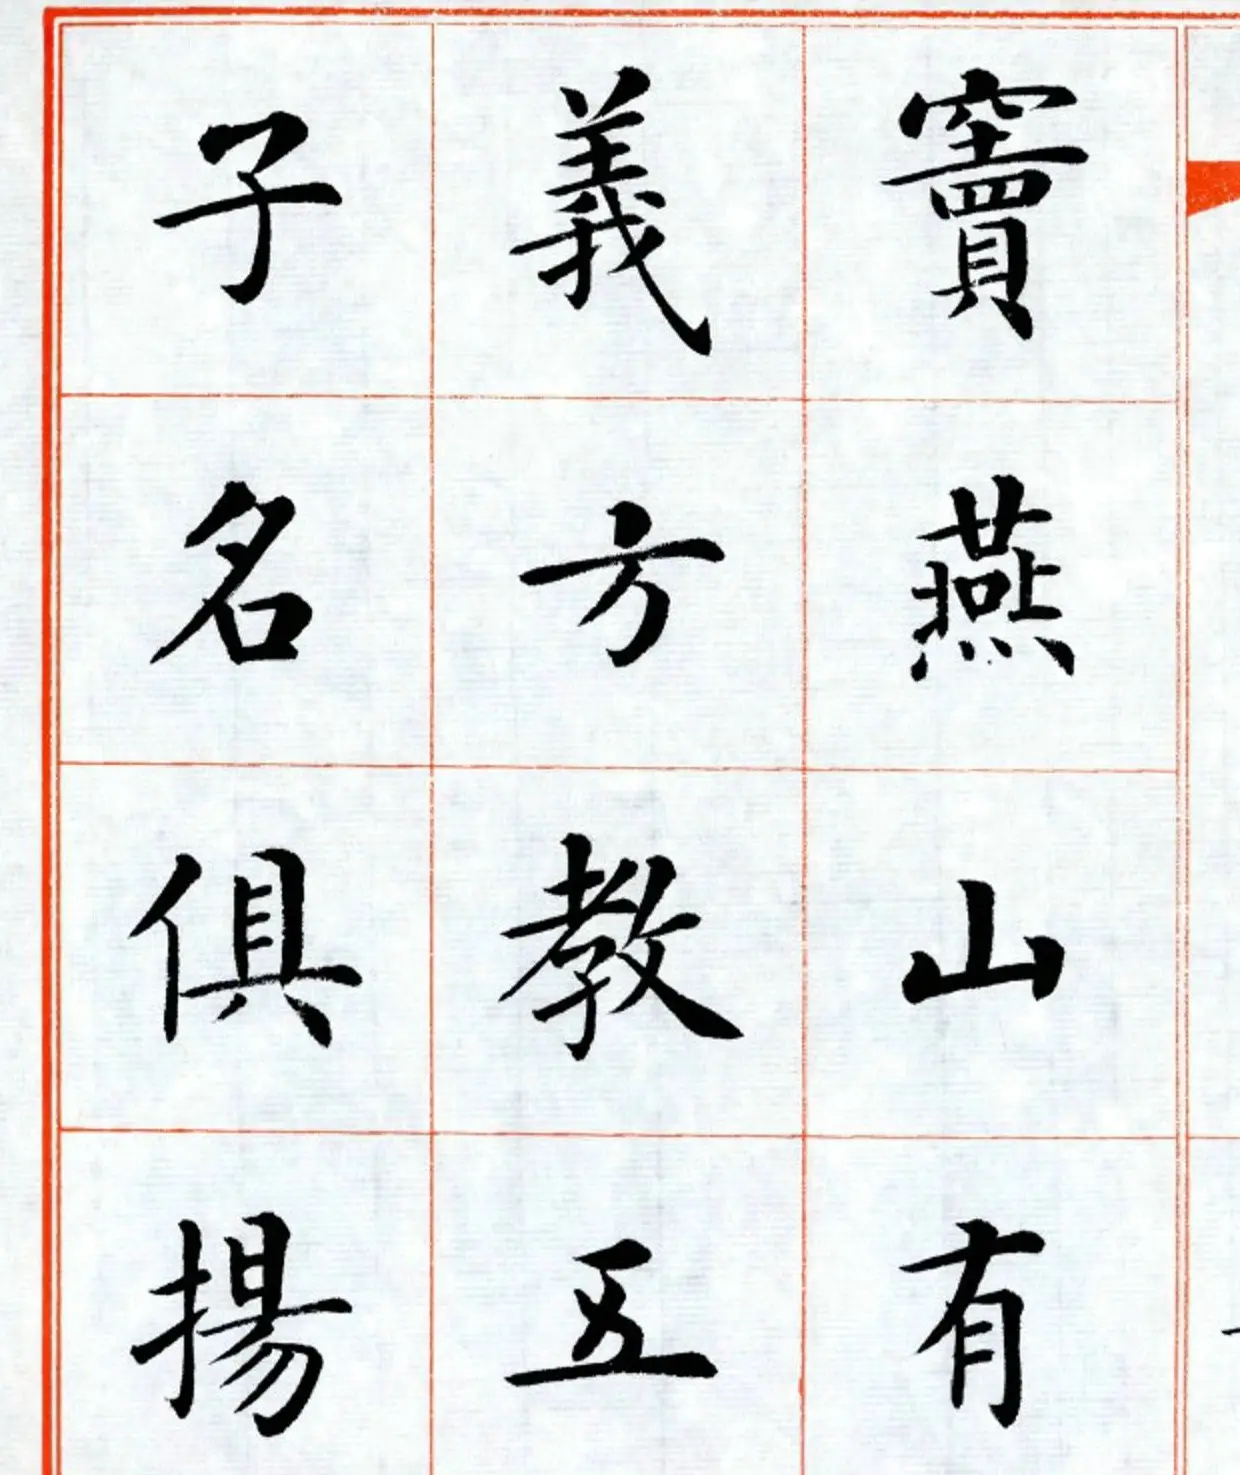 竇燕山有
義方教五
子名俱揚